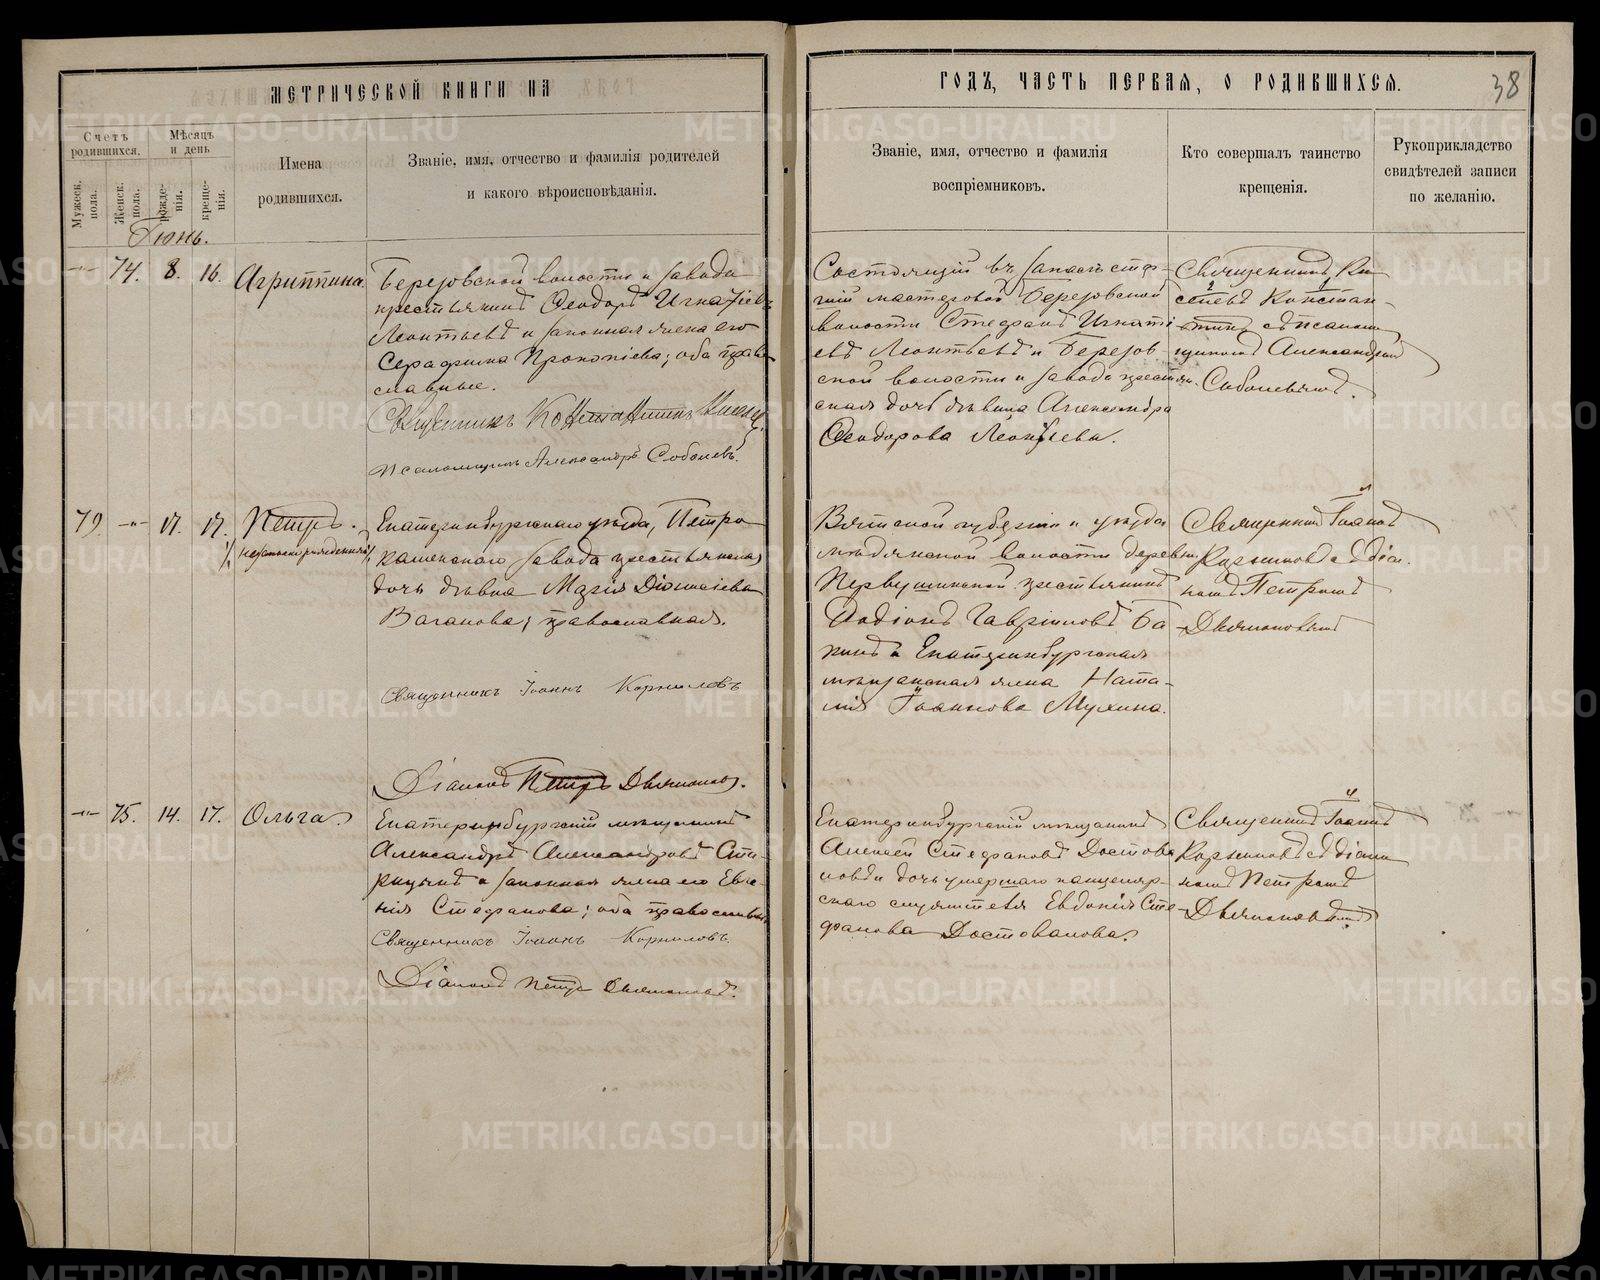 МЕТРИЧЕСКОЙ КНИГИ НА
ГОДЪ, ЧАСТЬ ПЕРВАЯ, О РОДИВШИХСЯ.
38
Счетъ родившихся.
Мужеск. пола.
Женск. пола.
Мѣсяцъ и день
рожде-нія.
креще-нія.
Имена
родившихся.
Званіе, имя, отчество и фамилія родителей
и какого вѣроисповѣданія.
Званіе, имя, отчество и фамилія
воспріемниковъ.
Кто совершалъ таинство
крещенія.
Рукоприкладство
свидѣтелей записи
по желанію.
Іюнь.
74. 8. 16. Агриппина.
Березовской волости и завода
крестьянинъ Ѳеодоръ Игнатіевъ
Леонтьевъ и законная жена его
Серафима Прокопіева; оба право
славные.
Священникъ Константинъ
Псаломщикъ Александръ Соболевъ.
Состоящій въ запасѣ
мастеровой Березовской
волости Стефанъ Игнаті
евъ Леонтьевъ и Березов-
ской волости и завода крестьян.
ская дочь дѣвица Александра
Ѳеодорова Леонтьева.
Священникъ
Констан-
тинъ съ псалом
щикомъ Александромъ
Соболевымъ.
79. 17. 17. Петръ.
незаконнорожденный
Екатеринбургскаго уѣзда, Петро
каменскаго завода крестьянская
дочь дѣвка Марія Діонисіева
Ваганова; православная.
Священникъ Іоаннъ Корниловъ
Діаконъ Петръ Двиняниновъ.
Вятской губерніи и уѣзда
мѣдянской волости деревни
Первушинской крестьянинъ
Иродіонъ Гавріиловъ Ба
кинъ и Екатеринбургская
мѣщанская жена Ната-
лія Іоаннова Мухина.
Священникъ Іоаннъ
Корниловъ съ діа
кономъ Петромъ
75. 14. 17. Ольга.
Екатеринбургскій мѣщанинъ
Александръ Александровъ
и законная жена его Евге-
нія Стефанова; оба православные
Священникъ Іоаннъ Корниловъ.
Діаконъ Петръ
Екатеринбургскій мѣщанинъ
Алексей Стефановъ Достова
ловъ и дочь умершаго канцеляр-
скаго служителя Евдокія Сте-
фанова Достовалова.
Священникъ Іоаннъ
Корниловъ съ діако
номъ Петромъ
METRIKI.GASO-URAL.RU